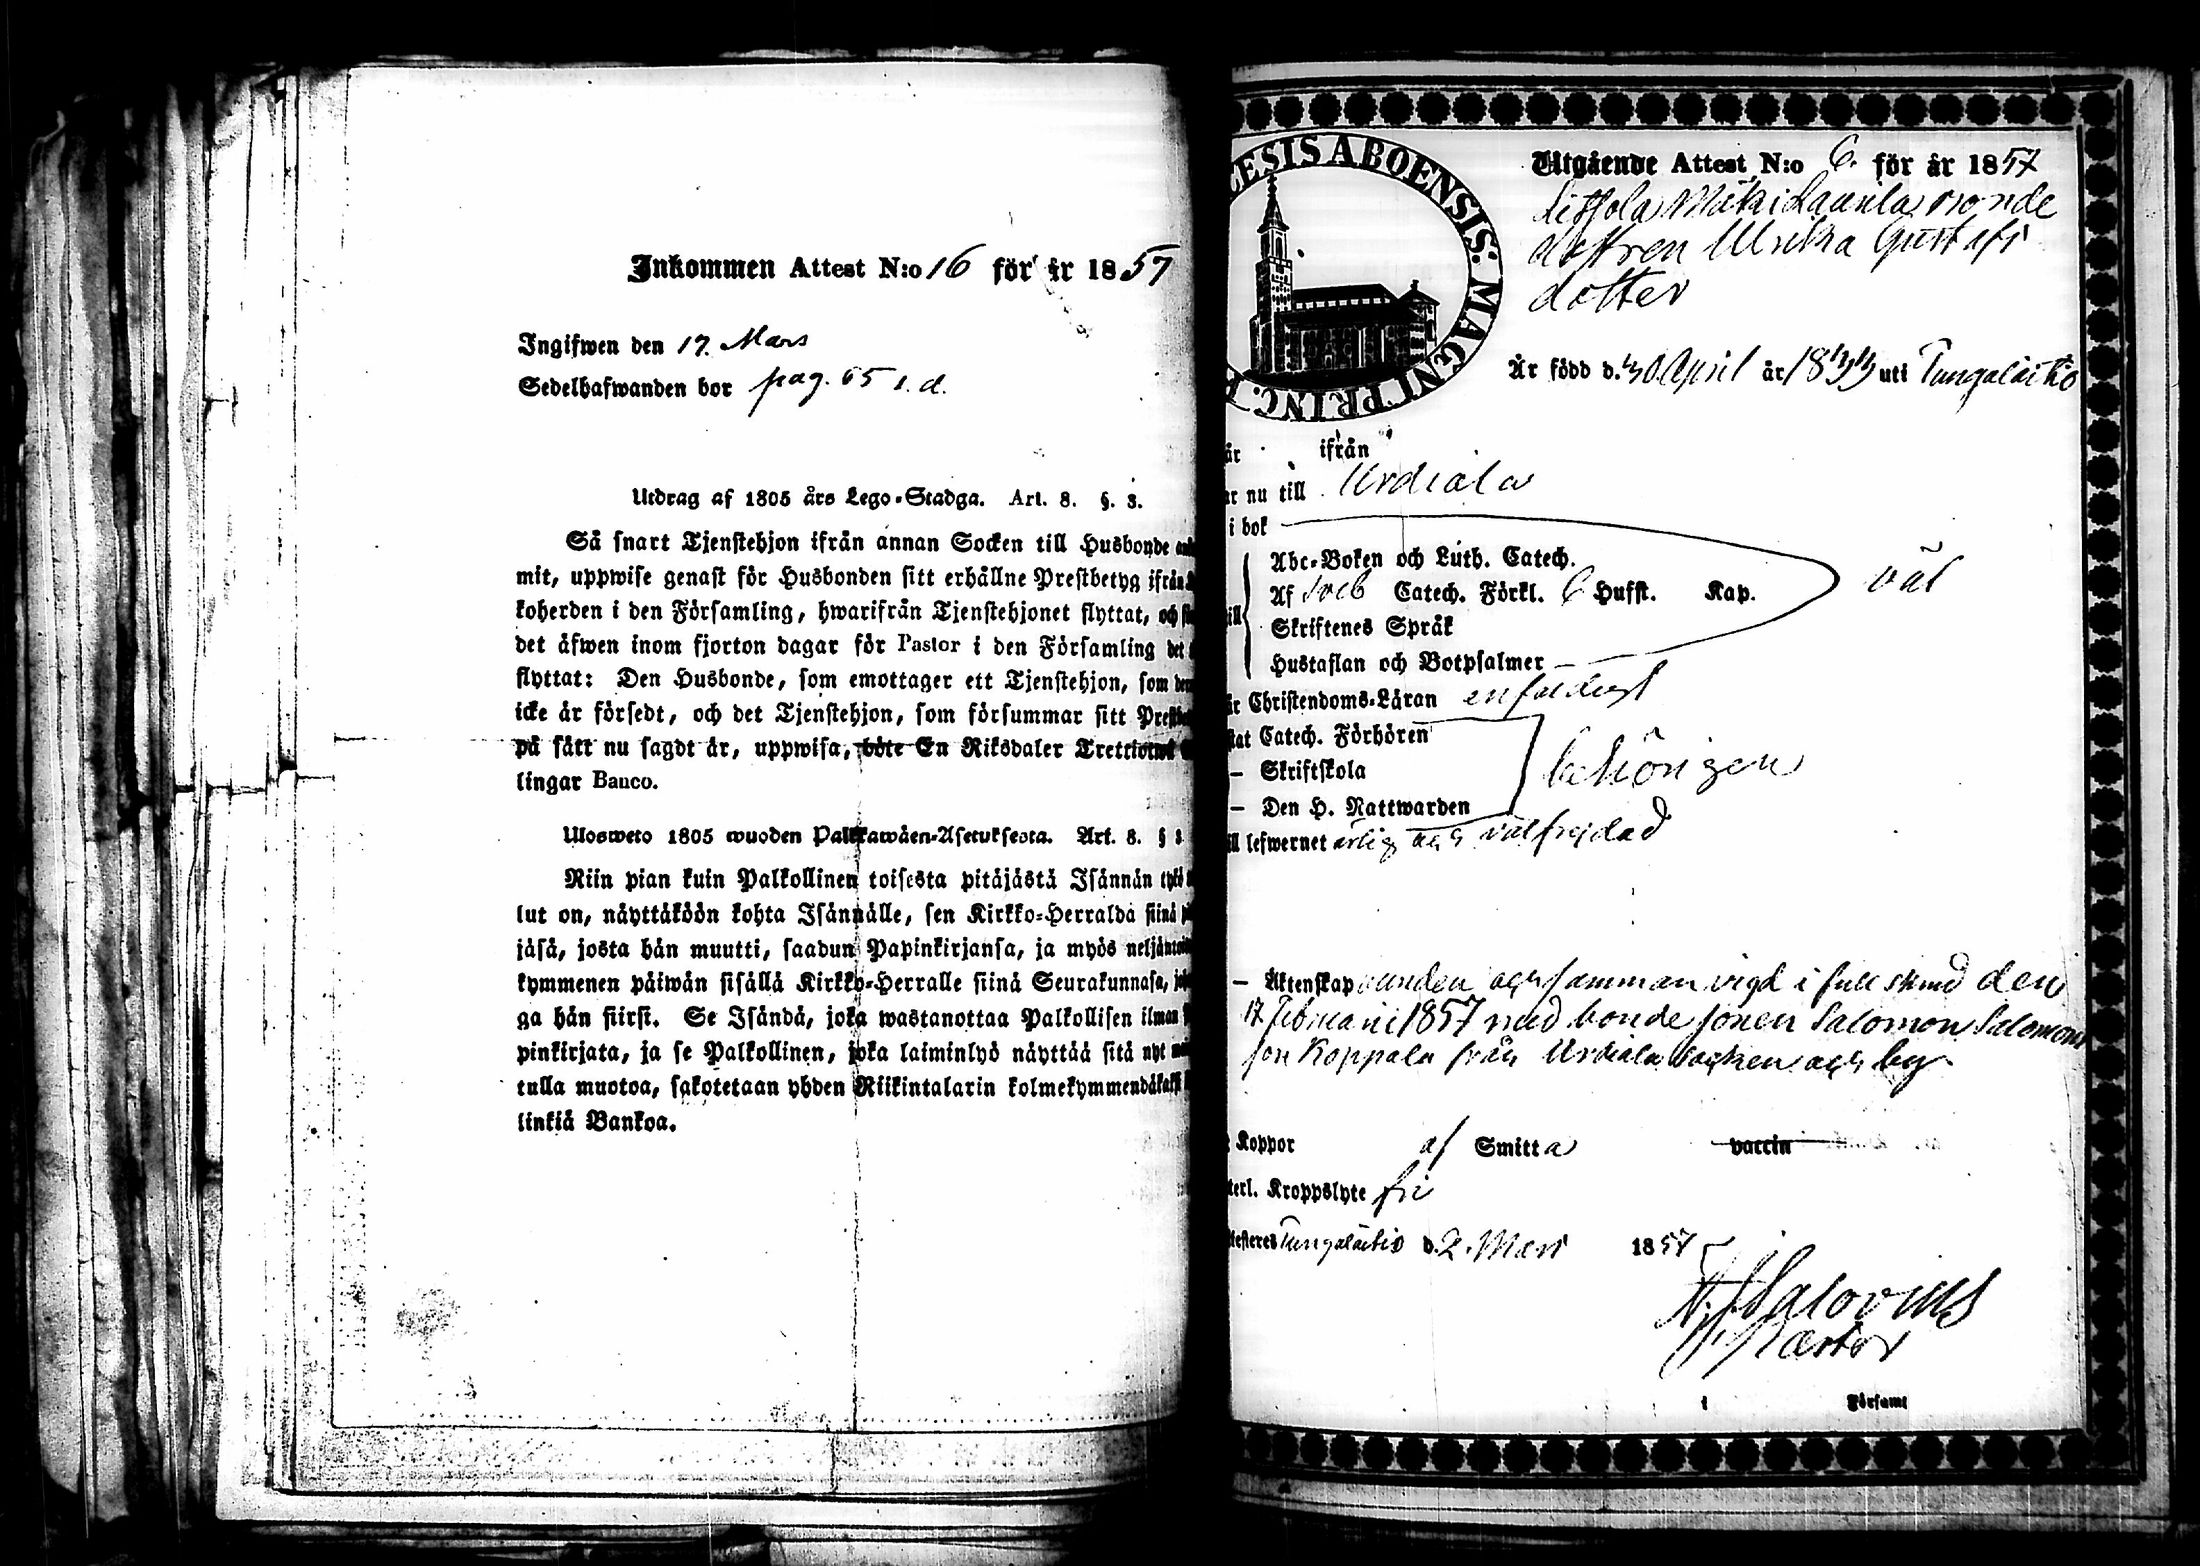 Inkommen Attest N:o 16 för år 1857
Ingifwen den 17. Mars
Sedelhafwanden bor pag. 65 s. d.
Utdrag af 1805 års Lego-Stadga. Art. 8. §. 3.
Så snart Tjenstehjon ifrån annan Socken till Husbonde
mit, uppwise genast för Husbonden sitt erhållne Prestbetyg ifrån
koherden i den Församling, hwarifrån Tjenstehjonet flyttat, och
det äfwen inom fjorton dagar för Pastor i den Församling det
flyttat: Den Husbonde, som emottager ett Tjenstehjon, som
icke är försedt, och det Tjenstehjon, som försummar sitt
på sätt nu sagdt är, uppwisa, böte En Riksdaler Trettiotwå
lingar Banco.
Ulosweto 1805 wuoden Palkkawäen-Asetuksesta. Art. 8. § 3
Niin pian kuin Palkollinen toisesta pitäjästä Isännän tykö
lut on, näyttäköön kohta Isännälle, sen Kirkko-Herralda siinä
jäsä, josta hän muutti, saadun Papinkirjansa, ja myös
kymmenen päiwän sisällä Kirkko-Herralle siinä Seurakunnasa,
ga hän siirst. Se Isändä, joka wastanottaa Palkollisen ilman
pinkirjata, ja se Palkollinen, joka laiminlyö näyttää sitä nyt
tulla muotoa, sakotetaan yhden Riikintalarin
linkiä Bankoa.
ESIS ABOENSIS. MAGNI PRINC.
Utgående Attest N:o 6. för år 1857
Mäki Laurila
Ulrika Gustafs
dotter
Är född d. 30 April år 1833 uti Tungeläitio
är ifrån
nu till Urdiala
i bok
Abc-Boken och Luth. Catech.
Af Sveb Catech. Förkl. 6 Hufst. Kap.
väl
Skriftenes Språk
Hustaflan och Botpsalmer
Christendoms-Läran enfaldigt
Catech. Förhören
— Skriftskola
behörigen
— Den H. Nattwarden
lefwernet ärlig och välfrejdad
— Äktenskap bunden och samman vigd i full stånd den
17 Februarii 1857 med bonde sonen Salomon Salomons
son Koppala från Urdiala socken och by
Koppor af Smitta vaccin
Kroppslyte fri
Tungeläitio d. 2. Mars 1857
Pastor
i Församl